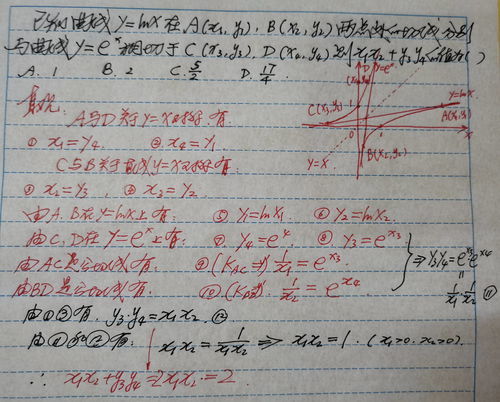 已知曲线 y=lnx 在 A(x₁,y₁), B(x₂,y₂) 两点处的切线分别
与曲线 y=eˣ 相切于 C(x₃,y₃), D(x₄,y₄) 则 x₁x₂+y₃y₄的值为( )
A. 1 B. 2 C. 5/2 D. 17/4
D y=eˣ
(x₄,y₄)
C(x₃,y₃)
y=lnx
A(x₁,y₁)
B(x₂,y₂)
y=x
0
x
A与D关于y=x对称.有
① x₁=y₄. ② x₄=y₁
C与B关于直线y=x对称.有
③ x₂=y₃ . ④ x₃=y₂
由A.B在y=lnx上有: ⑤ y₁=lnx₁ ⑥ y₂=lnx₂.
由C.D在y=eˣ上有: ⑦ y₄=e^x₄ ⑧ y₃=e^x₃
由AC是公切线有: ⑨ (K_AC=) 1/x₁=e^x₃
由BD是公切线有: ⑩ (K_BD=) 1/x₂=e^x₄
⇒ y₃y₄=e^x₃e^x₄
= 1/x₁·1/x₂ ⑪
由①③有. y₃·y₄=x₁x₂ ⑫
由⑪和⑫有: x₁x₂=1/x₁x₂ ⇒ x₁x₂=1. (x₁>0. x₂>0).
∴ x₁x₂+y₃y₄=2x₁x₂=2.